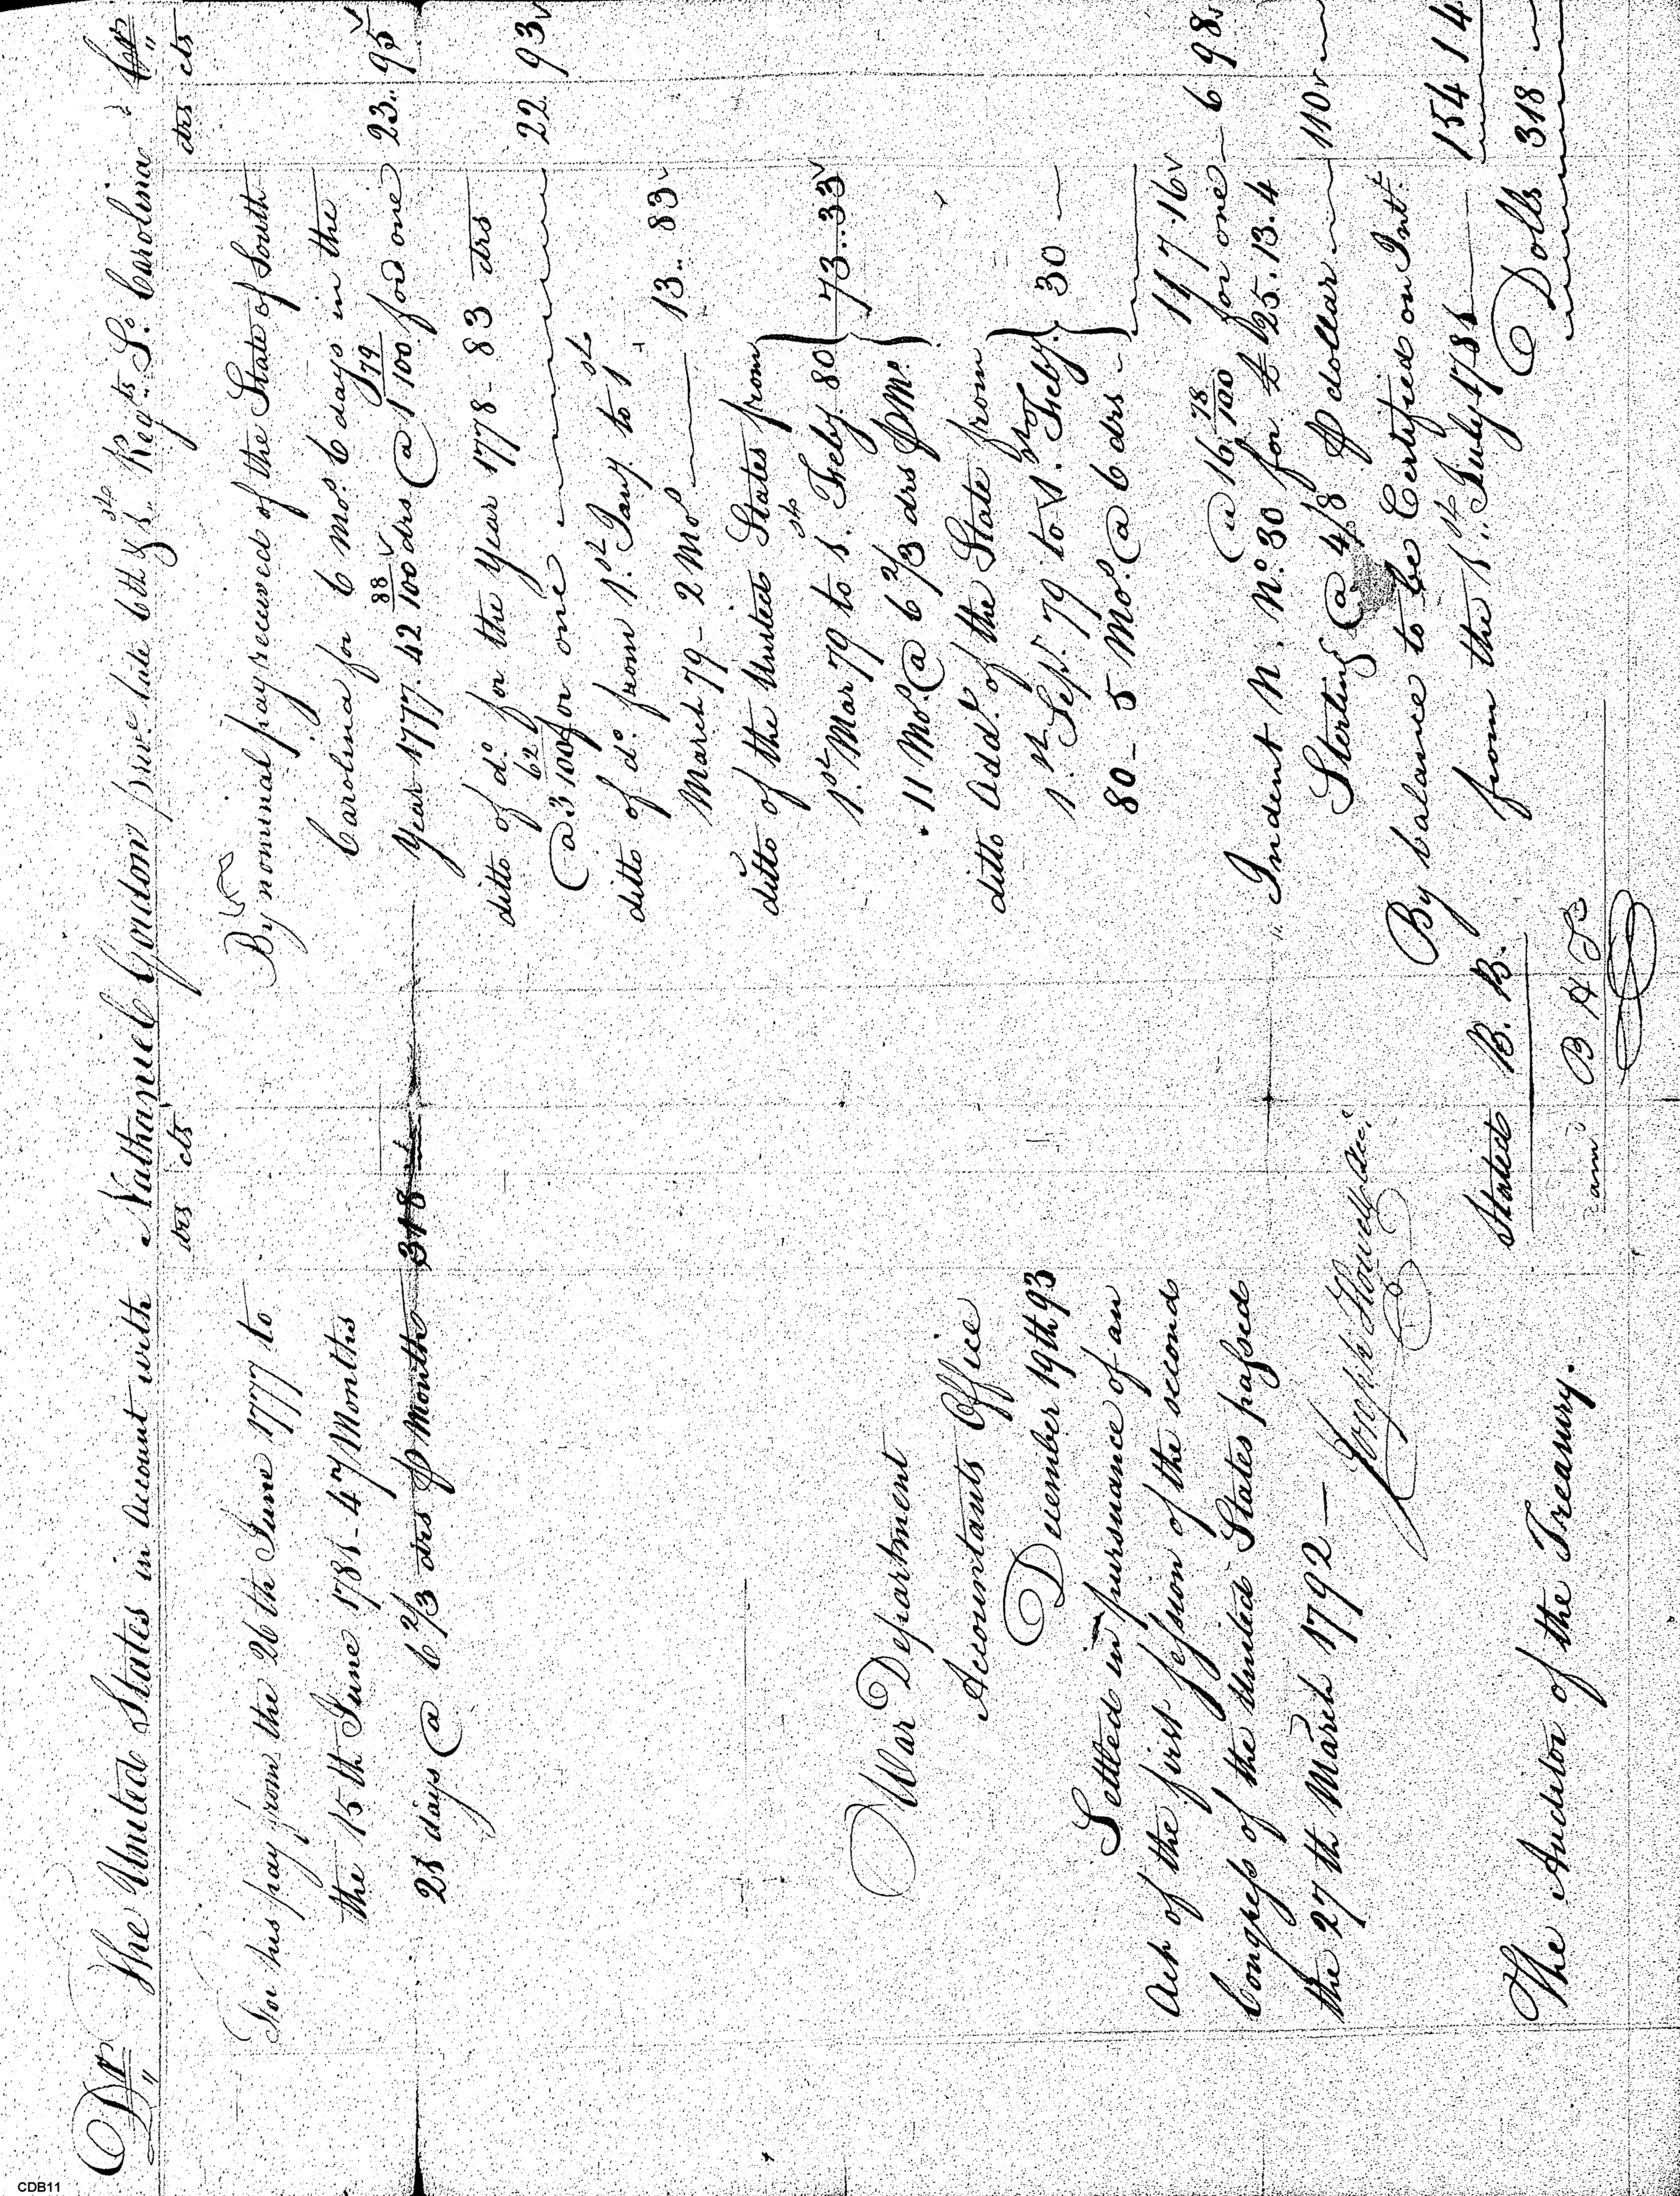 Dr The United States in Account with Nathanuel Gordon late 6th & 1st Regts So. Carolina Cr
drs cts
drs cts
For his pay from the 26th June 1777 to
the 15th June 1781 - 47 Months
21 days @ 6 2/3 drs p Month 318
War Department
Accountants Office
December 19th 93
Settled in pursuance of an
Act of the first session of the second
Congress of the United States passed
the 27th March 1792 —
Joseph Howell Acct.
The Auditor of the Treasury.
By nominal pay received of the State of South
Carolina for 6 Mos. 6 days in the
Year 1777. 42 88/100 drs @ 1 79/100 for one 23.. 95
ditto of do. for the Year 1778 - 83 drs
@ 3 62/100 for one 22. 93
ditto of do. from 1st Jany. to 1st
March 79 - 2 Mos 13.. 83
ditto of the United States from
1st Mar 79 to 1st Feby. 80
11 Mos. @ 6 2/3 drs p Mo. 73..33
ditto Add. of the State from
1st Sept. 79 to 1st Feby.
80 - 5 Mos. @ 6 drs 30 —
117.16
@ 16 78/100 for one 6 98
Indent N. No. 30 for £ 25.13.4
Sterling @ 4/8 p dollar 110
By balance to be Certified on Int.
from the 1st July 1781 154 14
Dolls 318
Stated B. B.
B H